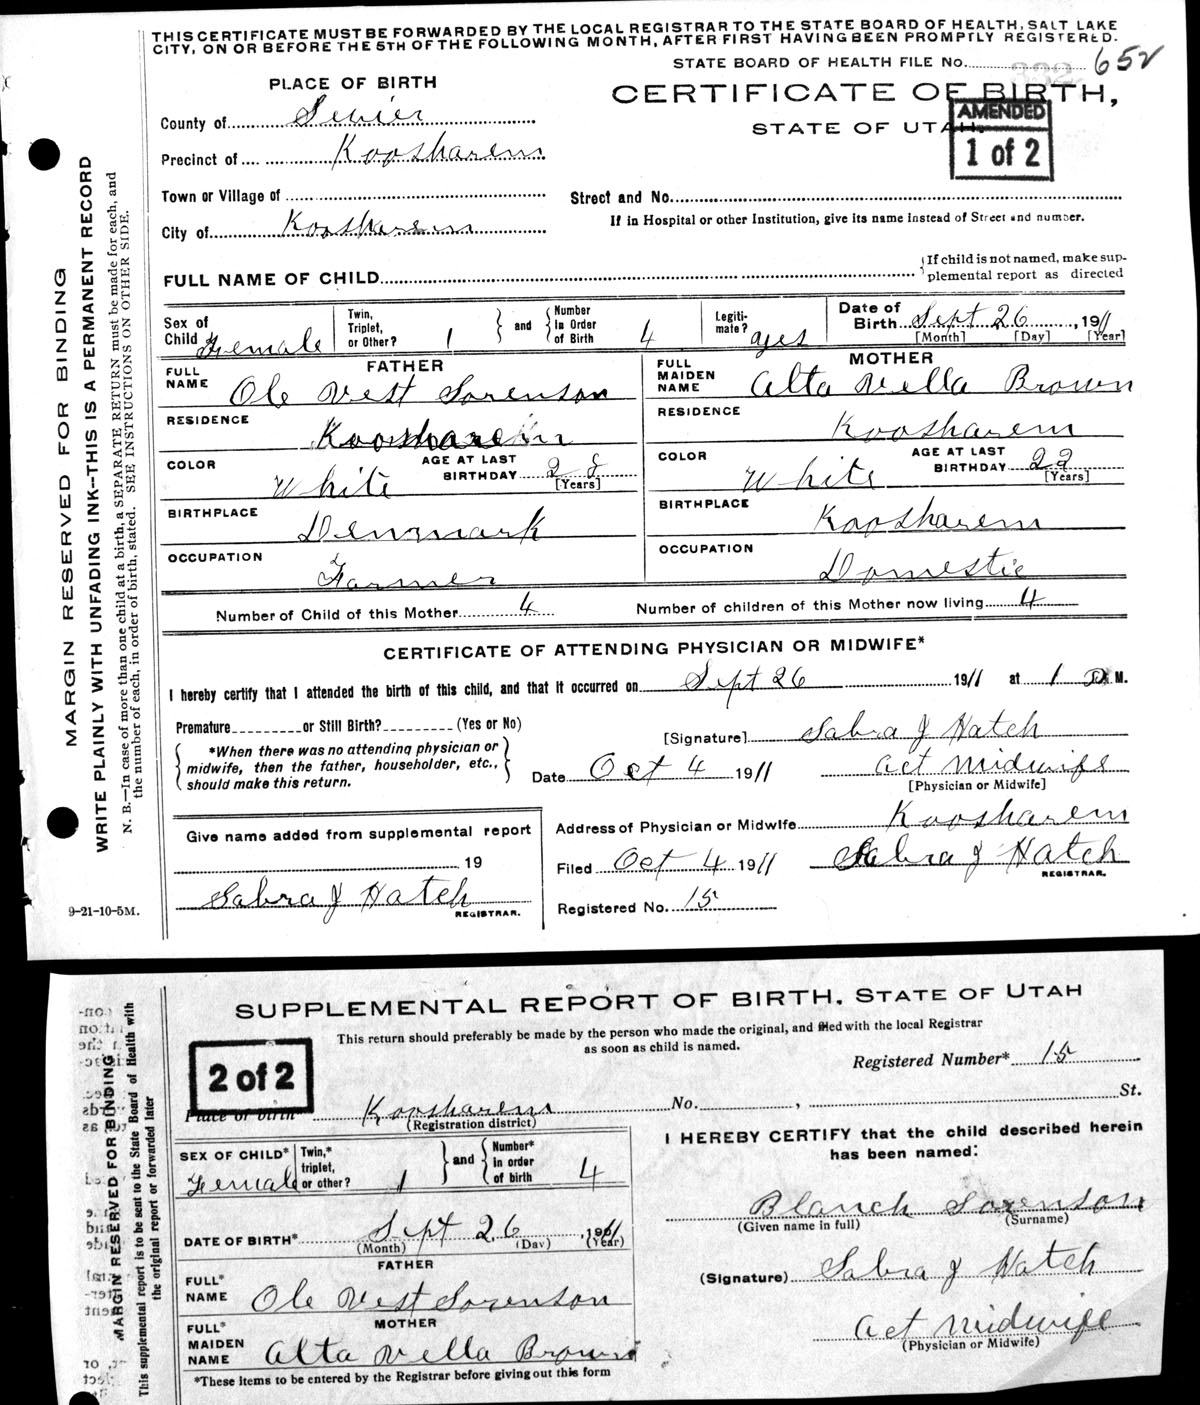 THIS CERTIFICATE MUST BE FORWARDED BY THE LOCAL REGISTRAR TO THE STATE BOARD OF HEALTH, SALT LAKE
CITY, ON OR BEFORE THE 5TH OF THE FOLLOWING MONTH, AFTER FIRST HAVING BEEN PROMPTLY REGISTERED.
STATE BOARD OF HEALTH FILE No. 652
PLACE OF BIRTH
CERTIFICATE OF BIRTH,
STATE OF UTAH.
AMENDED
1 of 2
County of Sevier
Precinct of Koosharem
Town or Village of
Street and No.
If in Hospital or other Institution, give its name instead of Street and number.
City of Koosharem
FULL NAME OF CHILD
If child is not named, make sup-
plemental report as directed
Sex of Child Female
Twin, Triplet, or Other? 1
and
Number in Order of Birth 4
Legiti- mate? yes
Date of Birth Sept 26, 1911
[Month] [Day] [Year]
FATHER
FULL NAME Ole Vest Sorenson
RESIDENCE Koosharem
COLOR White
AGE AT LAST BIRTHDAY 28
[Years]
BIRTHPLACE Denmark
OCCUPATION Farmer
MOTHER
FULL MAIDEN NAME Alta Vella Brown
RESIDENCE Koosharem
COLOR White
AGE AT LAST BIRTHDAY 22
[Years]
BIRTHPLACE Koosharem
OCCUPATION Domestic
Number of Child of this Mother 4
Number of children of this Mother now living 4
CERTIFICATE OF ATTENDING PHYSICIAN OR MIDWIFE*
I hereby certify that I attended the birth of this child, and that it occurred on Sept 26 1911 at 1 P. M.
Premature or Still Birth? (Yes or No)
*When there was no attending physician or
midwife, then the father, householder, etc.,
should make this return.
[Signature] Sabra J Hatch
Date Oct 4 1911
act midwife
[Physician or Midwife]
Give name added from supplemental report
19
Sabra J Hatch
REGISTRAR.
Address of Physician or Midwife Koosharem
Filed Oct 4 1911 Sabra J Hatch
REGISTRAR.
Registered No. 15
9-21-10-5M.
MARGIN RESERVED FOR BINDING
WRITE PLAINLY WITH UNFADING INK—THIS IS A PERMANENT RECORD
N. B.—In case of more than one child at a birth, a SEPARATE RETURN must be made for each, and
the number of each, in order of birth, stated. SEE INSTRUCTIONS ON OTHER SIDE.
SUPPLEMENTAL REPORT OF BIRTH, STATE OF UTAH
This return should preferably be made by the person who made the original, and filed with the local Registrar
as soon as child is named.
2 of 2
Registered Number* 15
Place of birth Koosharem No. , St.
(Registration district)
SEX OF CHILD* Female
Twin,* triplet, or other? 1
and
Number* in order of birth 4
DATE OF BIRTH* Sept 26, 1911
(Month) (Day) (Year)
FATHER
FULL* NAME Ole Vest Sorenson
MOTHER
FULL* MAIDEN NAME Alta Vella Brown
*These items to be entered by the Registrar before giving out this form
I HEREBY CERTIFY that the child described herein
has been named:
Blanch Sorenson
(Given name in full) (Surname)
(Signature) Sabra J Hatch
act midwife
(Physician or Midwife)
MARGIN RESERVED FOR BINDING
This supplemental report is to be sent to the State Board of Health with
the original report or forwarded later